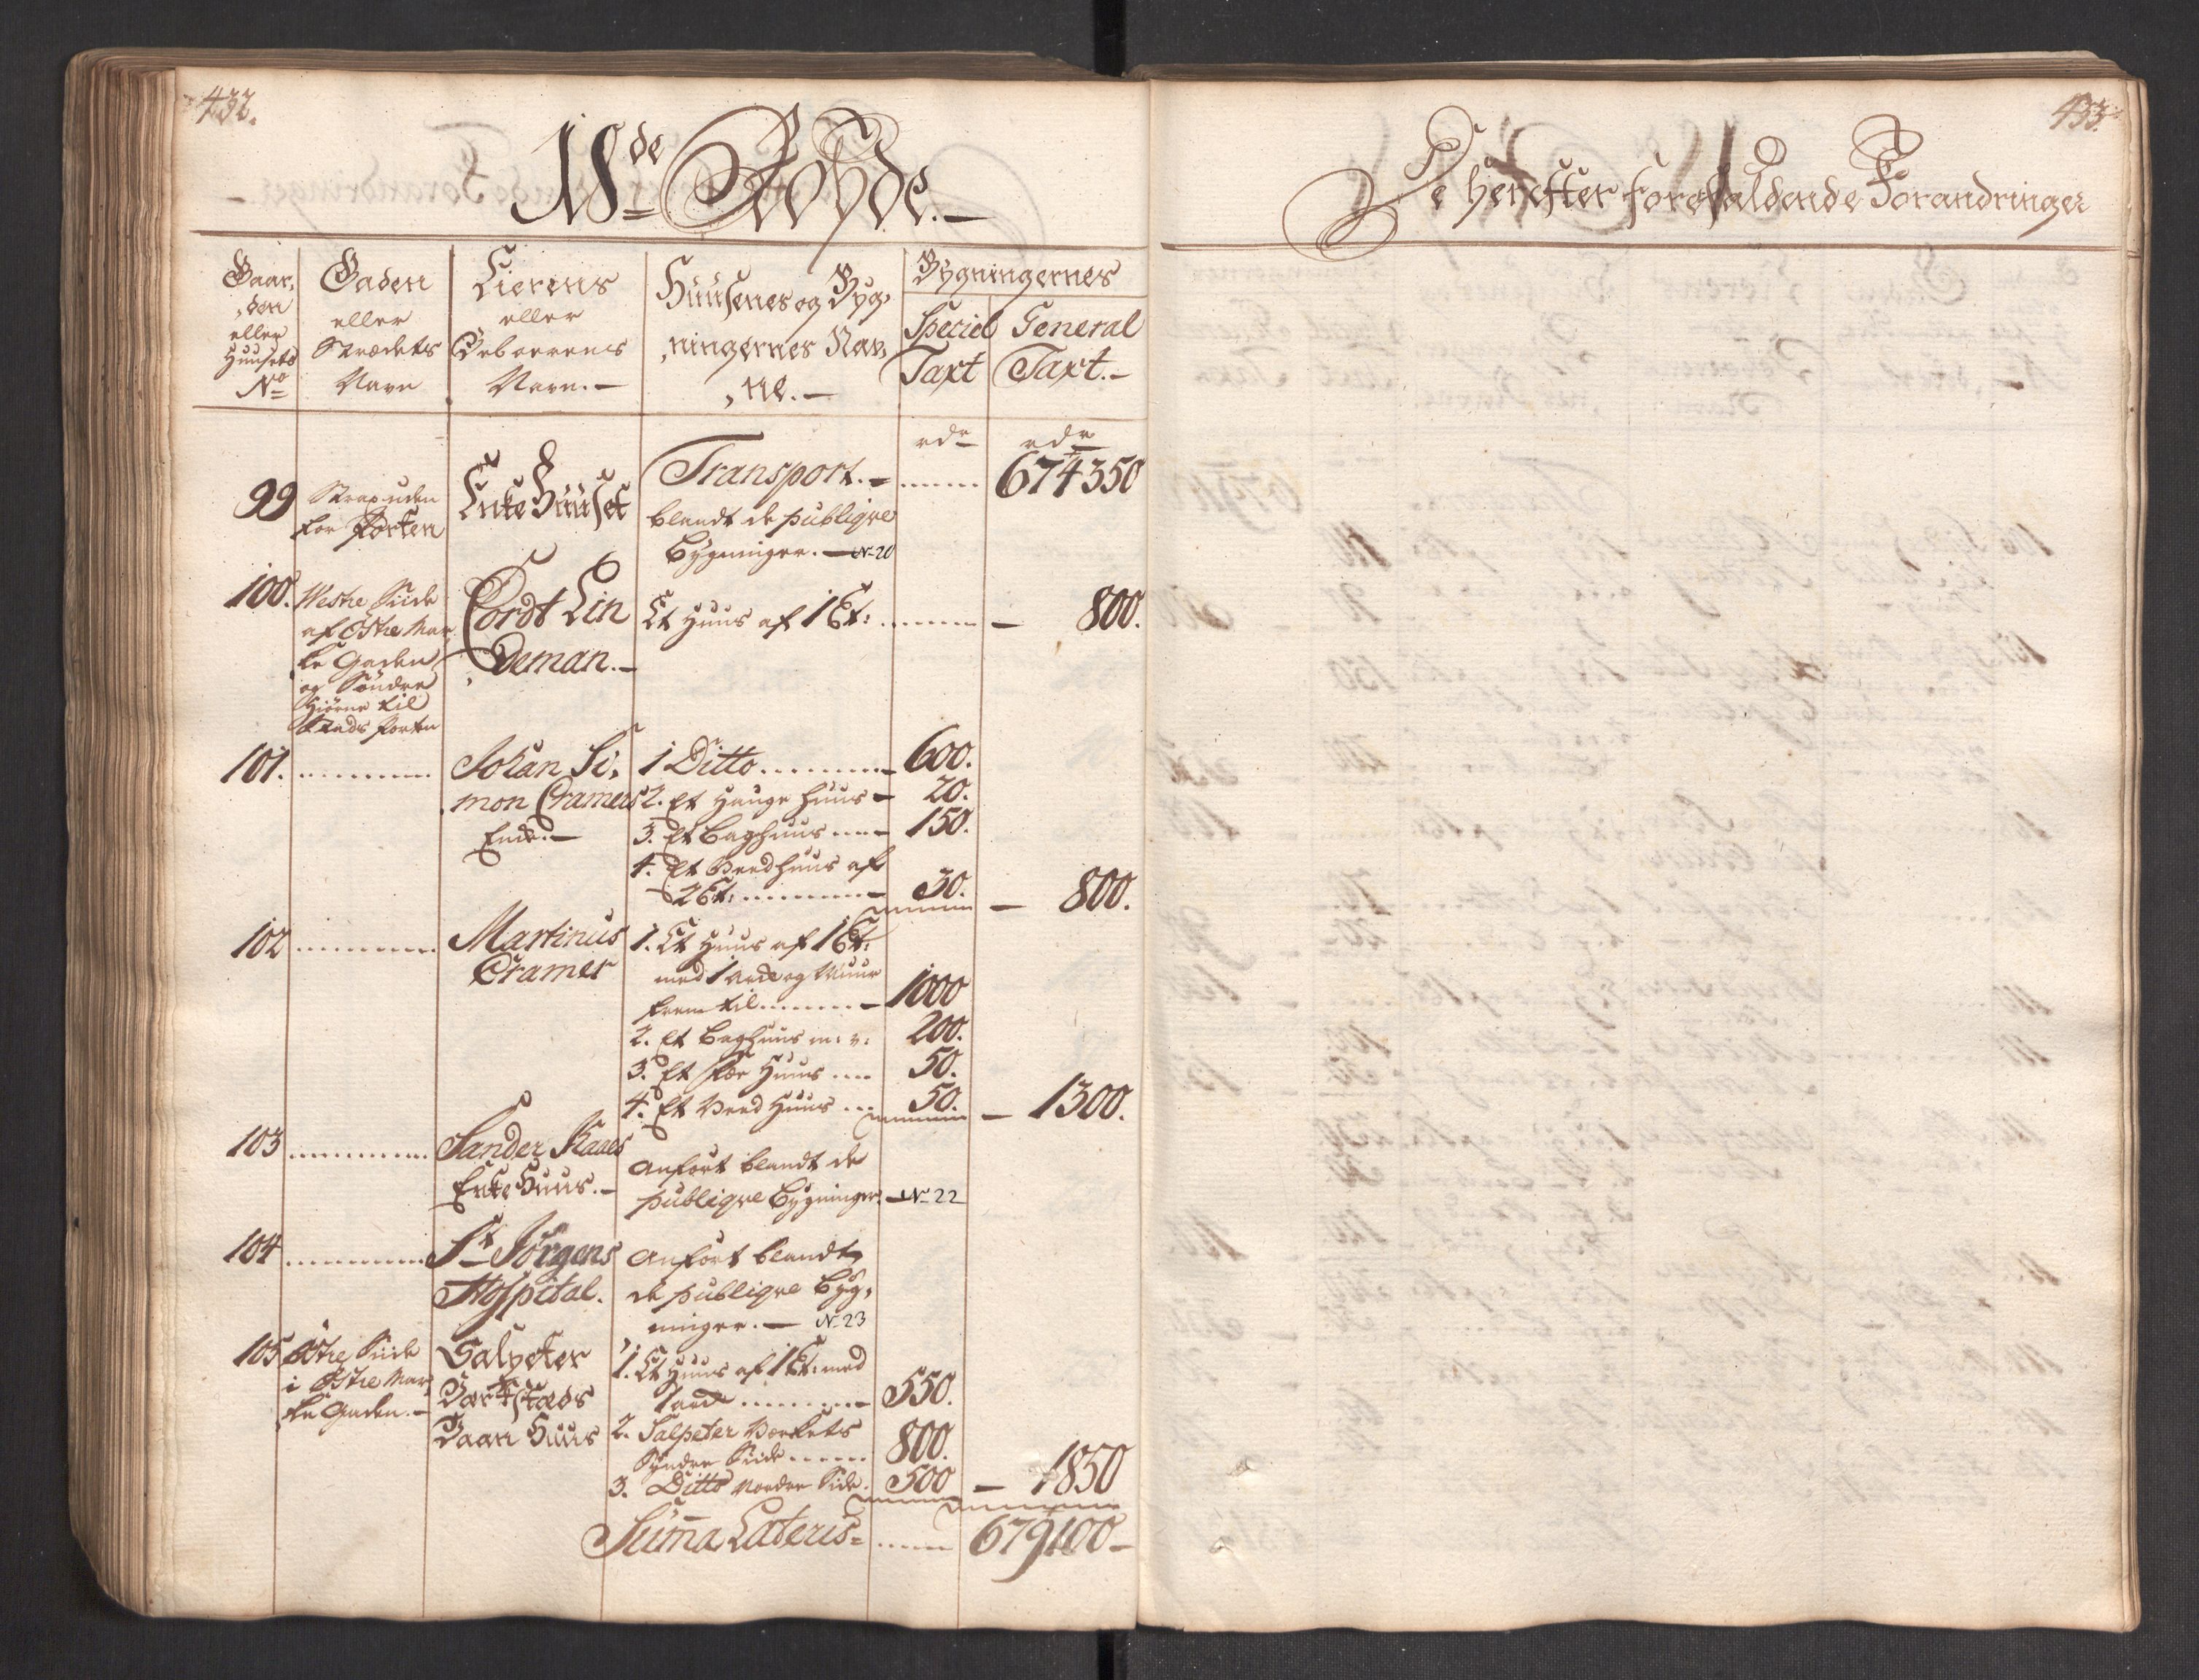 432.
18de Rohde.
Gaar,
,den
eller
Huusets
No
Gaden
eller
Strædets
Navn
Eierens
eller
Beboerens
Navn.
Huusenes og Byg,
,ningernes Nav,
,ne.
Bygningernes
Speciel
Taxt
General
Taxt.
rdr
rdr
Transport. 674350
99 Strax uden
for Porten
Enke Huuset
blandt de publiqve
Bygninger. No 20
100. Westre Siide
af Østre Mar,
ke Gaden
og Søndre
Hiørne til
Stads Porten
Cordt Lin
,deman.
Et Huus af 1 Et: 800.
101. Johan Si,
,mon Cramers
Enke.
1 Ditto 600.
2. Et Hauge Huus 20.
3. Et Baghuus 150.
4. Et Veedhuus af
2 Et: 30. 800.
102 Martinus
Cramer
1. Et Huus af 1 Et:
med 1 Arck og Muur
frem til 1000
2. Et Baghuus m: v: 200.
3. Et Fæe Huus 50.
4. Et Veed Huus 50. 1300.
103 Sander Kaaes
Enke Huus.
Anført blandt de
publiqve Bygninger. No 22
104 St Jørgens
Hospital.
Anført blandt
de publiqve Byg,
ninger. No 23
105 Østre Siide
i Østre Mar,
ke Gaden.
Salpeter
Værkstæds
Vaan Huus
1. Et Huus af 1 Et: med
1 arck 550.
2. Salpeter Værkets
Syndre Siide 800.
3. Ditto Nordre Side. 500 1850
Summa Lateris 679100
433.
De herefter forefaldende Forandringer